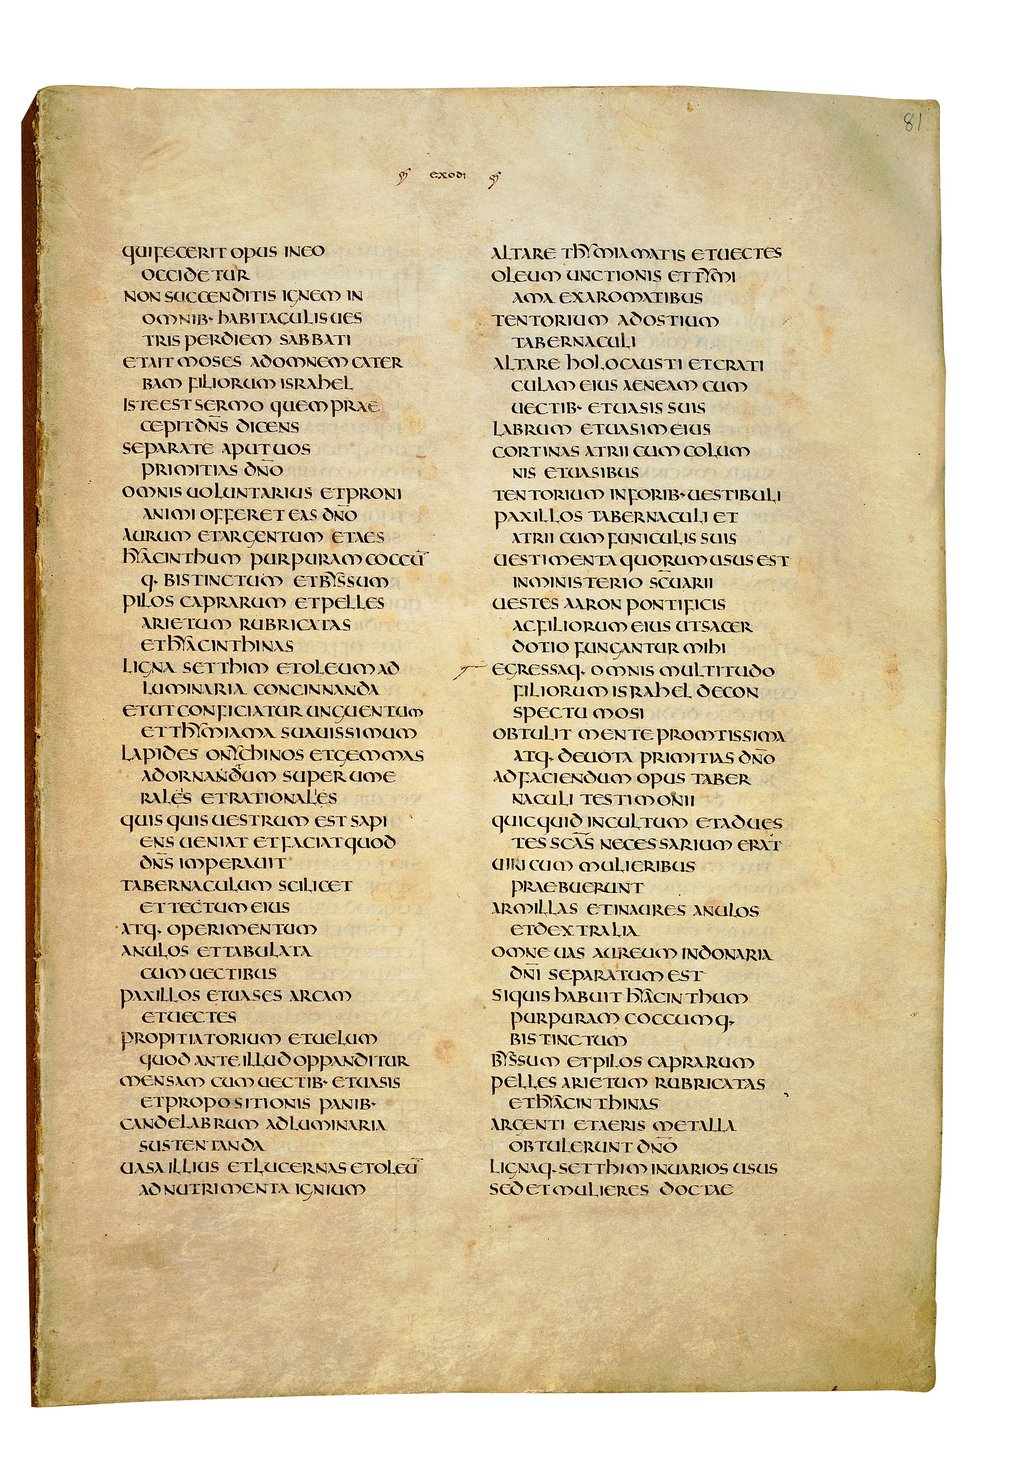 81
EXODI
QUI FECERIT OPUS IN EO
OCCIDETUR
NON SUCCENDITIS IGNEM IN
OMNIB· HABITACULIS UES
TRIS PER DIEM SABBATI
ET AIT MOSES AD OMNEM CATER
BAM FILIORUM ISRAHEL
ISTE EST SERMO QUEM PRAE
CEPIT DN̄S DICENS
SEPARATE APUT UOS
PRIMITIAS DN̄O
OMNIS UOLUNTARIUS ET PRONI
ANIMI OFFERET EAS DN̄O
AURUM ET ARGENTUM ET AES
HYACINTHUM PURPURAM COCCŪ
Q· BIS TINCTUM ET BYSSUM
PILOS CAPRARUM ET PELLES
ARIETUM RUBRICATAS
ET HYACINTHINAS
LIGNA SETTHIM ET OLEUM AD
LUMINARIA CONCINNANDA
ET UT CONFICIATUR UNGUENTUM
ET THYMIAMA SUAUISSIMUM
LAPIDES ONYCHINOS ET GEMMAS
AD ORNANDUM SUPERUME
RALES ET RATIONALES
QUISQUIS UESTRUM EST SAPI
ENS UENIAT ET FACIAT QUOD
DN̄S IMPERAUIT
TABERNACULUM SCILICET
ET TECTUM EIUS
ATQ· OPERIMENTUM
ANULOS ET TABULATA
CUM UECTIBUS
PAXILLOS ET UASES ARCAM
ET UECTES
PROPITIATORIUM ET UELUM
QUOD ANTE ILLUD OPPANDITUR
MENSAM CUM UECTIB· ET UASIS
ET PROPOSITIONIS PANIB·
CANDELABRUM AD LUMINARIA
SUSTENTANDA
UASA ILLIUS ET LUCERNAS ET OLEŪ
AD NUTRIMENTA IGNIUM
ALTARE THYMIAMATIS ET UECTES
OLEUM UNCTIONIS ET THYMI
AMA EX AROMATIBUS
TENTORIUM AD OSTIUM
TABERNACULI
ALTARE HOLOCAUSTI ET CRATI
CULAM EIUS AENEAM CUM
UECTIB· ET UASIS SUIS
LABRUM ET UASIM EIUS
CORTINAS ATRII CUM COLUM
NIS ET UASIBUS
TENTORIUM IN FORIB· UESTIBULI
PAXILLOS TABERNACULI ET
ATRII CUM FUNICULIS SUIS
UESTIMENTA QUORUM USUS EST
IN MINISTERIO SC̄UARII
UESTES AARON PONTIFICIS
AC FILIORUM EIUS UT SACER
DOTIO FUNGANTUR MIHI
EGRESSAQ· OMNIS MULTITUDO
FILIORUM ISRAHEL DE CON
SPECTU MOSI
OBTULIT MENTE PROMTISSIMA
ATQ· DEUOTA PRIMITIAS DN̄O
AD FACIENDUM OPUS TABER
NACULI TESTIMONII
QUICQUID IN CULTUM ET AD UES
TES SCĀS NECESSARIUM ERAT
UIRI CUM MULIERIBUS
PRAEBUERUNT
ARMILLAS ET INAURES ANULOS
ET DEXTRALIA
OMNE UAS AUREUM IN DONARIA
DN̄I SEPARATUM EST
SI QUIS HABUIT HYACINTHUM
PURPURAM COCCUMQ·
BIS TINCTUM
BYSSUM ET PILOS CAPRARUM
PELLES ARIETUM RUBRICATAS
ET HYACINTHINAS
ARGENTI ET AERIS METALLA
OBTULERUNT DN̄O
LIGNAQ· SETTHIM IN UARIOS USUS
SED ET MULIERES DOCTAE